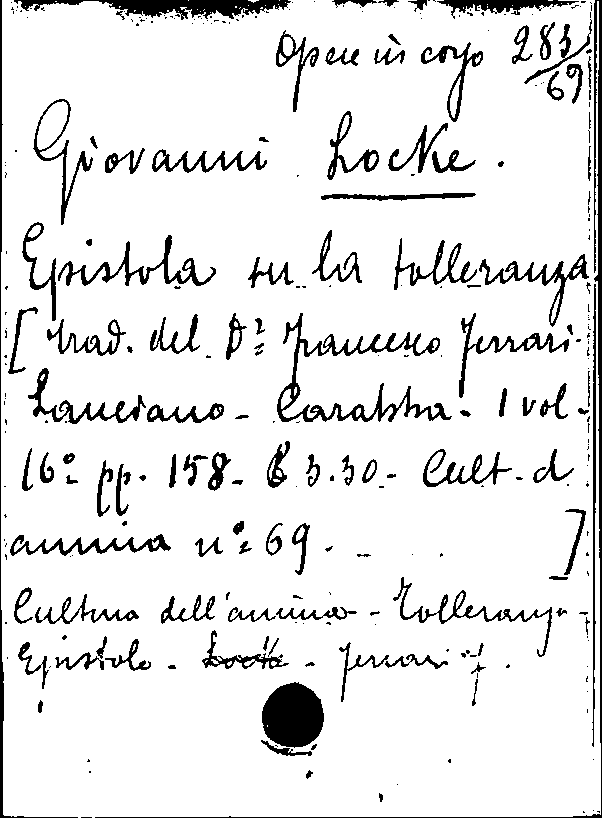 Opere in corso 283/69
Giovanni Locke.
Epistola su la tolleranza.
[trad. del Dr Francesco Ferrari.
Lanciano - Carabba - 1 vol.
16° pp. 158 - £ 3.30 - Cult. d
anima n° 69. - ]
Cultura dell'anima - Tolleranza -
Epistola - Locke - Ferrari f.